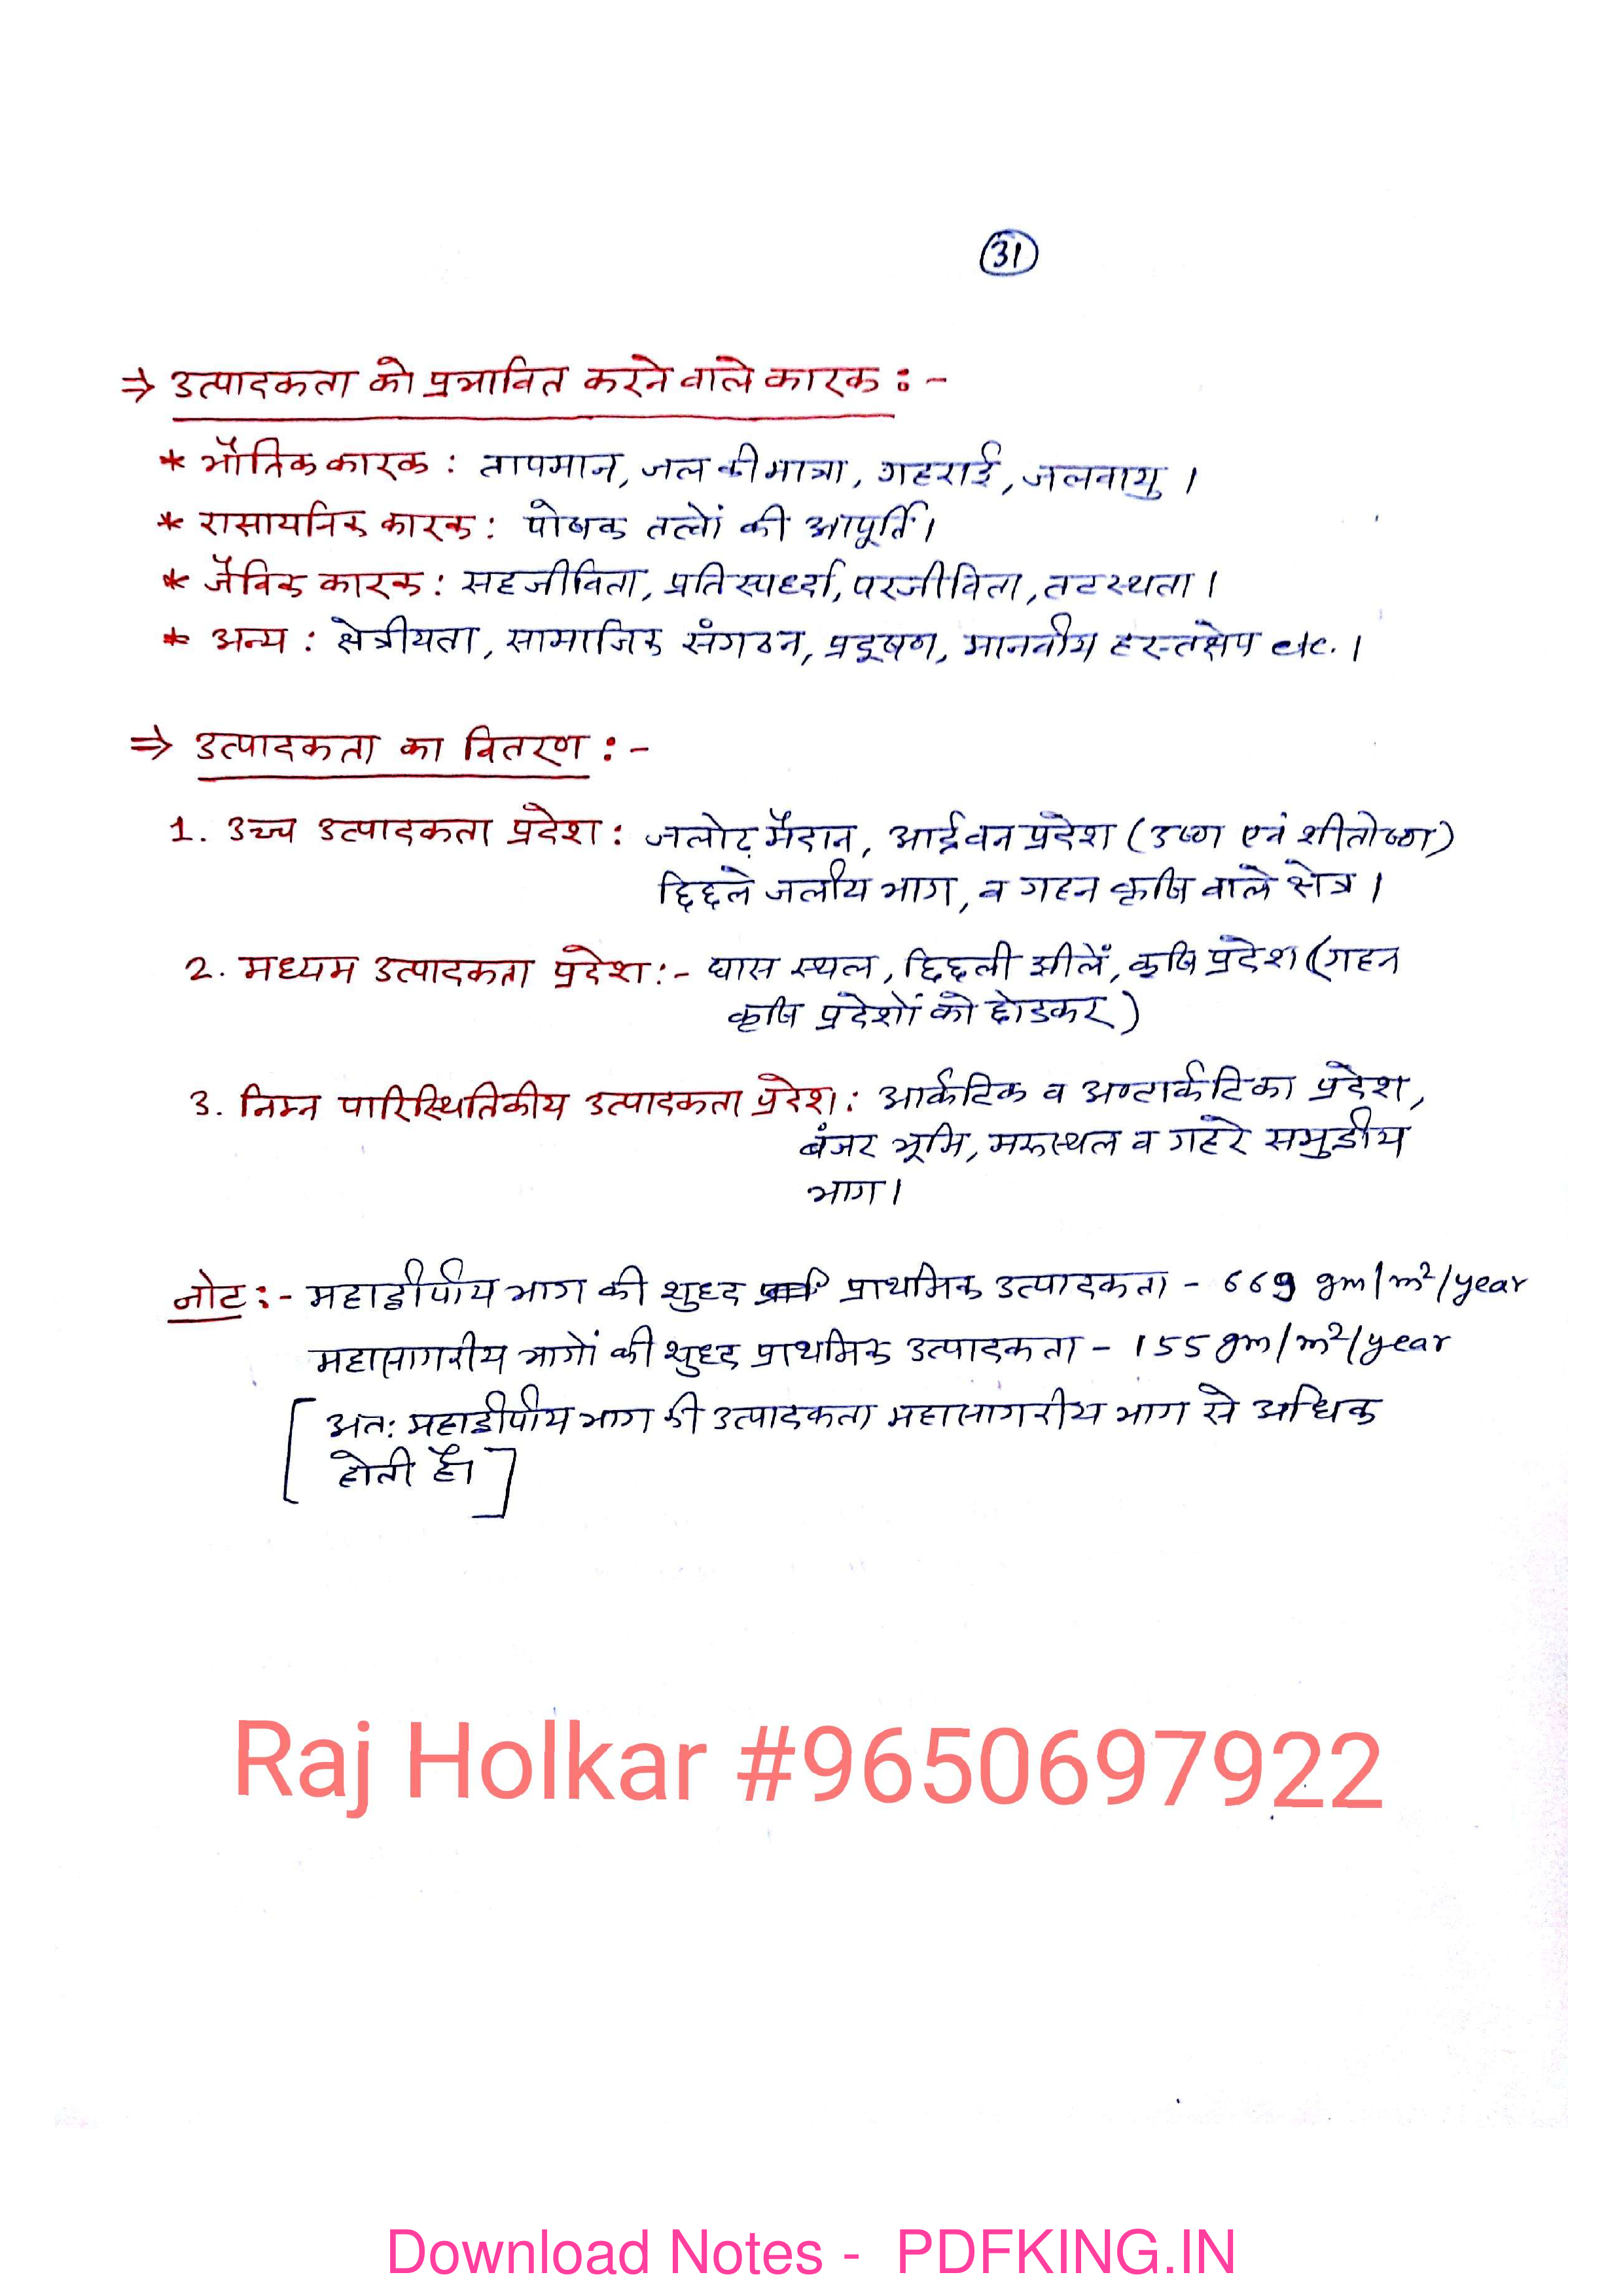 31
⇒ उत्पादकता को प्रभावित करने वाले कारक : -
* भौतिक कारक : तापमान, जल की मात्रा, गहराई, जलवायु ।
* रासायनिक कारक : पोषक तत्वों की आपूर्ति ।
* जैविक कारक : सहजीविता, प्रतिस्पर्ध्दा, परजीविता, तटस्थता ।
* अन्य : क्षेत्रीयता, सामाजिक संगठन, प्रदूषण, मानवीय हस्तक्षेप etc. ।
⇒ उत्पादकता का वितरण : -
1. उच्च उत्पादकता प्रदेश : जलोढ़ मैदान, आर्द्र वन प्रदेश (उष्ण एवं शीतोष्ण)
छिछले जलीय भाग, व गहन कृषि वाले क्षेत्र ।
2. मध्यम उत्पादकता प्रदेश :- घास स्थल, छिछली झीलें, कृषि प्रदेश (गहन
कृषि प्रदेशों को छोडकर)
3. निम्न पारिस्थितिकीय उत्पादकता प्रदेश : आर्कटिक व अण्टार्कटिका प्रदेश,
बंजर भूमि, मरुस्थल व गहरे समुद्रीय
भाग ।
नोट :- महाद्वीपीय भाग की शुध्द प्राथमिक उत्पादकता - 669 gm/m²/year
महासागरीय भागों की शुध्द प्राथमिक उत्पादकता - 155 gm/m²/year
[ अतः महाद्वीपीय भाग की उत्पादकता महासागरीय भाग से अधिक
होती है। ]
Raj Holkar #9650697922
Download Notes - PDFKING.IN